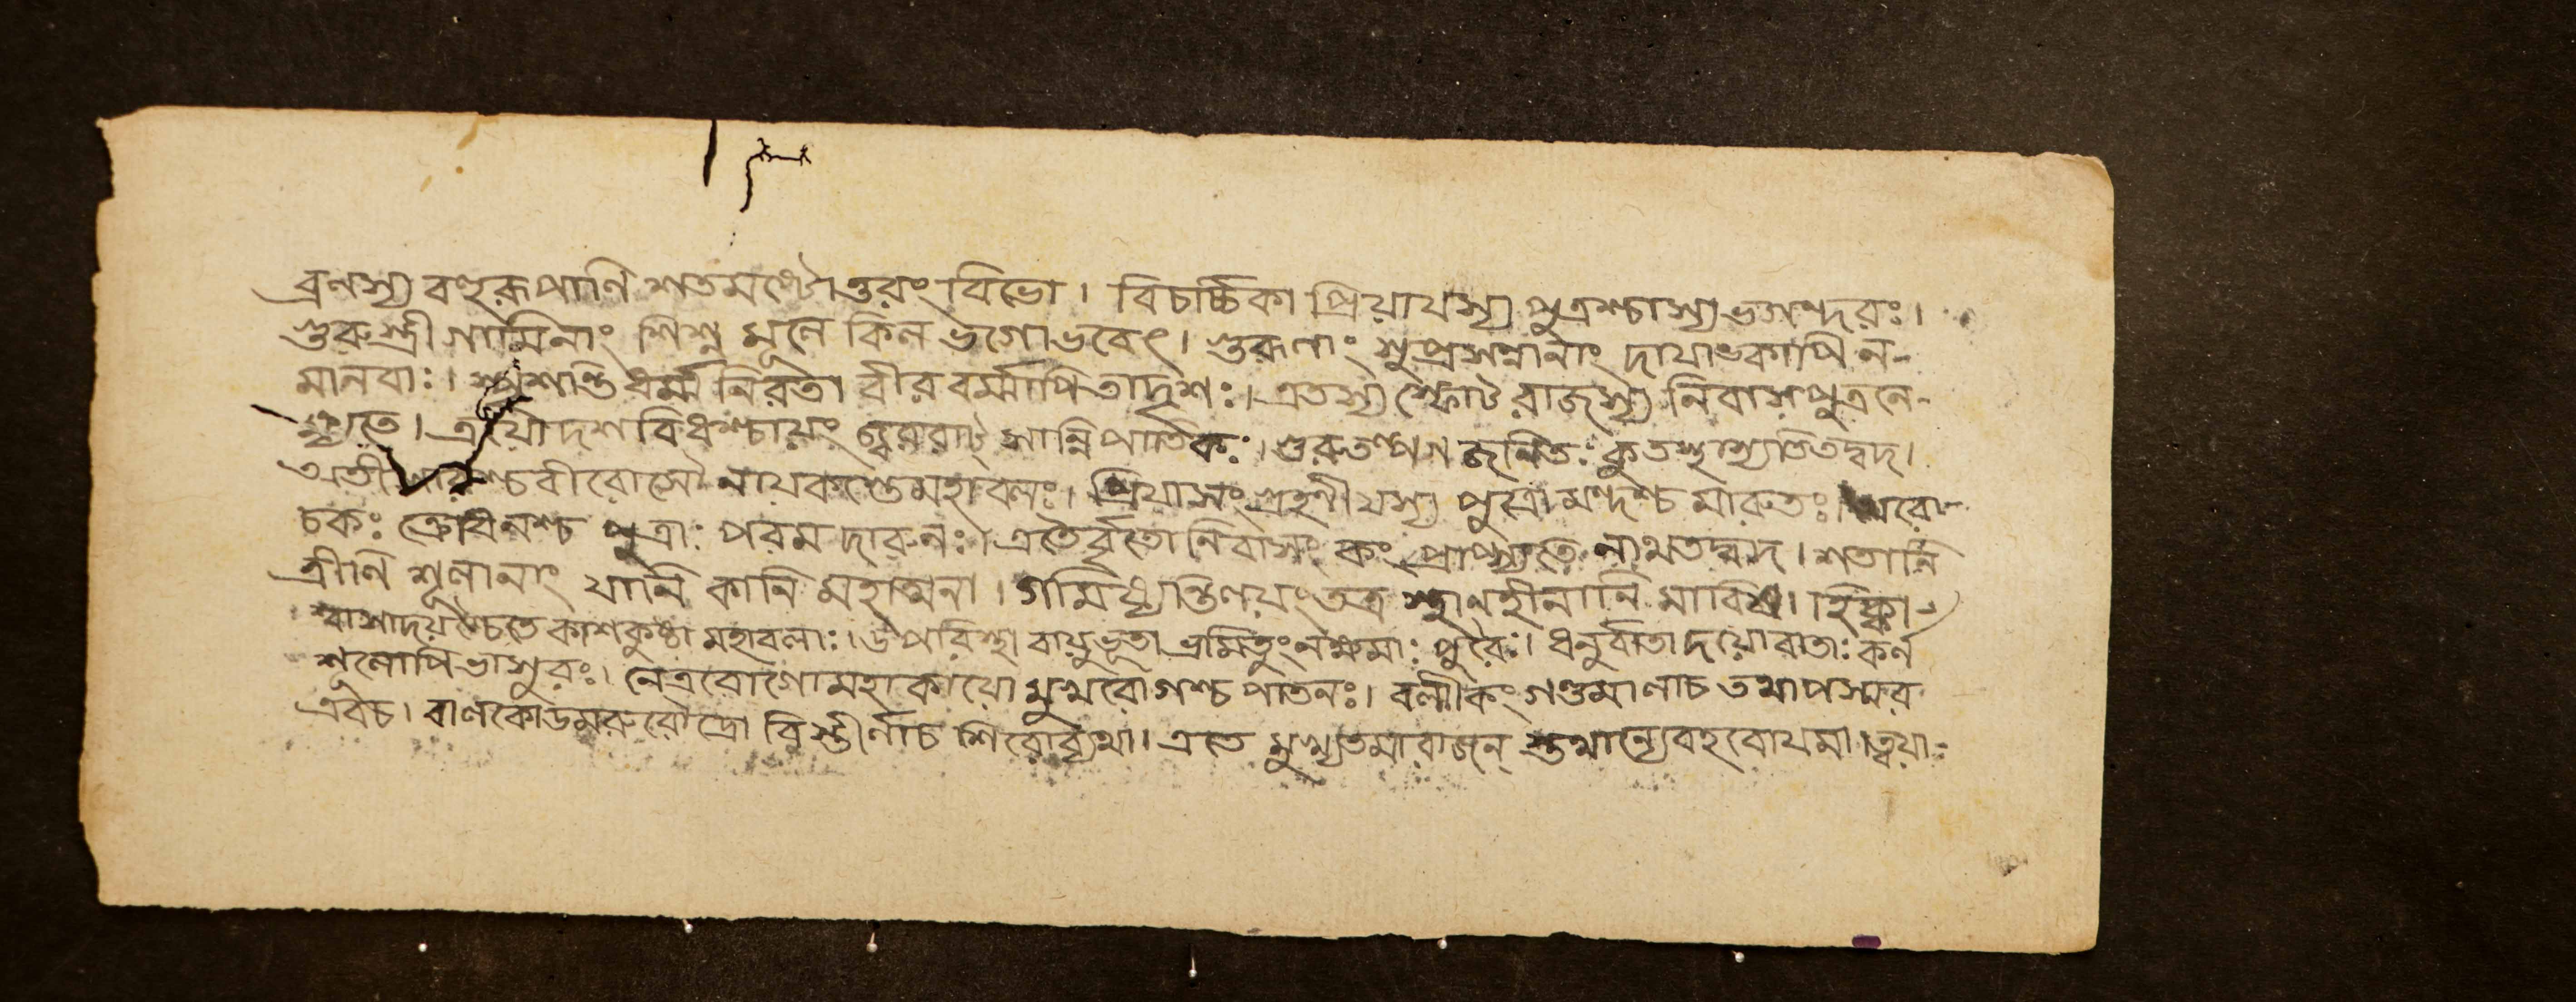 ব্রণস্য বহুরূপাণি শতমষ্টোত্তরং বিভো। বিচর্চ্চিকা প্রিয়াযস্য পুত্রশ্চাস্য ভগন্দরঃ।
গুরুস্ত্রীগামিনাং শিশ্ন মূলে কিল ভগোভবেৎ। গুরূণাং সুপ্রসন্নানাং দায়াঙ্কাপি ন-
মানবাঃ। ধর্ম্ম নিরতা বীরবর্ম্মাপি তাদৃশঃ। এতস্য স্ফোট রাজস্য নিবাসপুত্রনে-
ষ্যতে। ত্রয়োদশবিধশ্চায়ং জ্বররাট্ সান্নিপাতিকঃ। গুরুতল্পগ জনিতঃ কুতস্থাস্যতিতদ্বদ।
অতীসারশ্চবীরোসৌ নায়কস্তেমহাবলঃ। প্রিয়াসংগ্রহণীযস্য পুত্রোমন্দশ্চ মারুতঃ। অরো-
চকঃ ক্রোধিনশ্চ পুত্রাঃ পরম দারুনঃ। এতৈর্বৃতো নিবাসং কং প্রাপ্স্যতে নাথতদ্বদ। শতানি
ত্রীণি শূলানাং যানি কানি মহাত্মনা। গমিষ্যন্তিলয়ং অত্র স্থানহীনানি মাবিধ। হিক্কা-
শ্বাসাদয়শ্চৈতে কাশকুষ্ঠা মহাবলাঃ। উপরিস্থা বায়ুভূতা ভ্রমিতুং নক্ষমাঃ পুরৈঃ। ধনুর্বাতাদয়োবাতাঃ কর্ণ
শূলোপিভাসুরঃ। নেত্ররোগোমহাকায়ো মুখরোগশ্চ পাতনঃ। বল্মীকং গণ্ডমালাচ তথাপস্মার
এবচ। বালকোডমরুরৌদ্রো বিস্তীর্ণাচ শিরোব্যথা। এতে মুখ্যতমারাজন্ স্তথান্যেবহবোযমা। ত্বয়া-